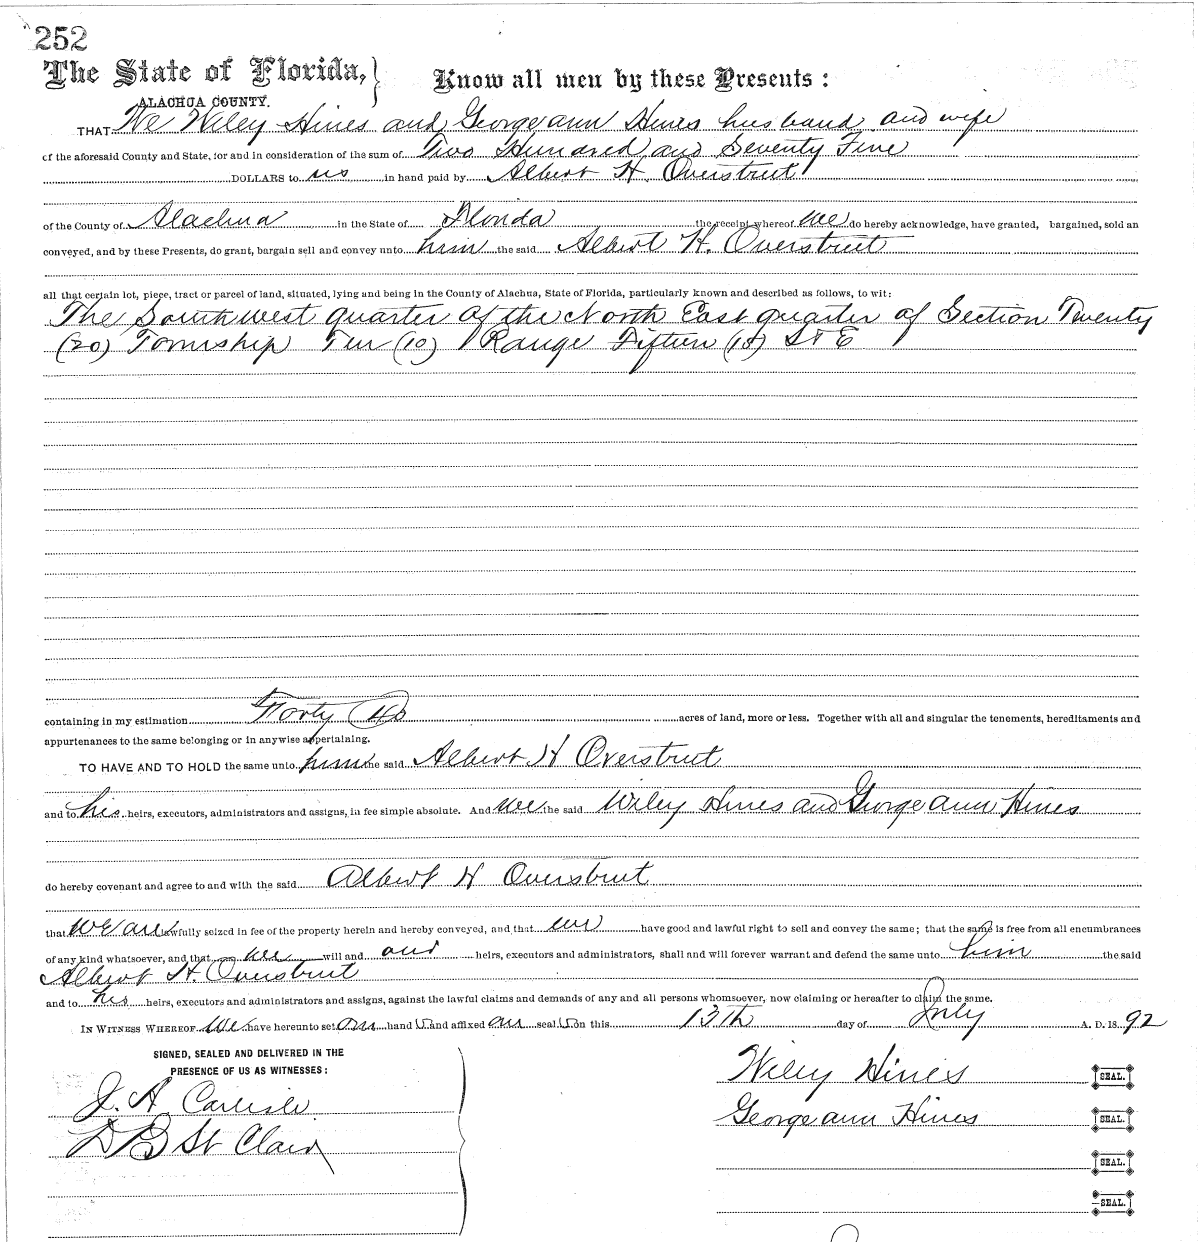 252
The State of Florida,
Know all men by these Presents:
ALACHUA COUNTY.
THAT We Wiley Hines and Georgeann Hines husband and wife
of the aforesaid County and State, for and in consideration of the sum of Two Hundred and Seventy Five
DOLLARS to us in hand paid by Albert H. Overstreet
of the County of Alachua in the State of Florida the receipt whereof we do hereby acknowledge, have granted, bargained, sold an
conveyed, and by these Presents, do grant, bargain sell and convey unto him the said Albert H. Overstreet
all that certain lot, piece, tract or parcel of land, situated, lying and being in the County of Alachua, State of Florida, particularly known and described as follows, to wit:
The South west quarter of the North East quarter of Section Twenty
(20) Township Ten (10) Range Fifteen (15) S & E
containing in my estimation Forty (40 acres of land, more or less. Together with all and singular the tenements, hereditaments and
appurtenances to the same belonging or in anywise appertaining.
TO HAVE AND TO HOLD the same unto him the said Albert H Overstreet
and to his heirs, executors, administrators and assigns, in fee simple absolute. And we the said Wiley Hines and Georgeann Hines
do hereby covenant and agree to and with the said Albert H Overstreet
that we are lawfully seized in fee of the property herein and hereby conveyed, and that we have good and lawful right to sell and convey the same; that the same is free from all encumbrances
of any kind whatsoever, and that we will and our heirs, executors and administrators, shall and will forever warrant and defend the same unto him the said
Albert H. Overstreet
and to his heirs, executors and administrators and assigns, against the lawful claims and demands of any and all persons whomsoever, now claiming or hereafter to claim the same.
IN WITNESS WHEREOF We have hereunto set our hand s and affixed our seal s on this 13th day of July A. D. 18 92
SIGNED, SEALED AND DELIVERED IN THE
PRESENCE OF US AS WITNESSES:
Wiley Hines SEAL.
J. A Carlisle
Georgeann Hines SEAL.
D B St Clair
SEAL.
SEAL.